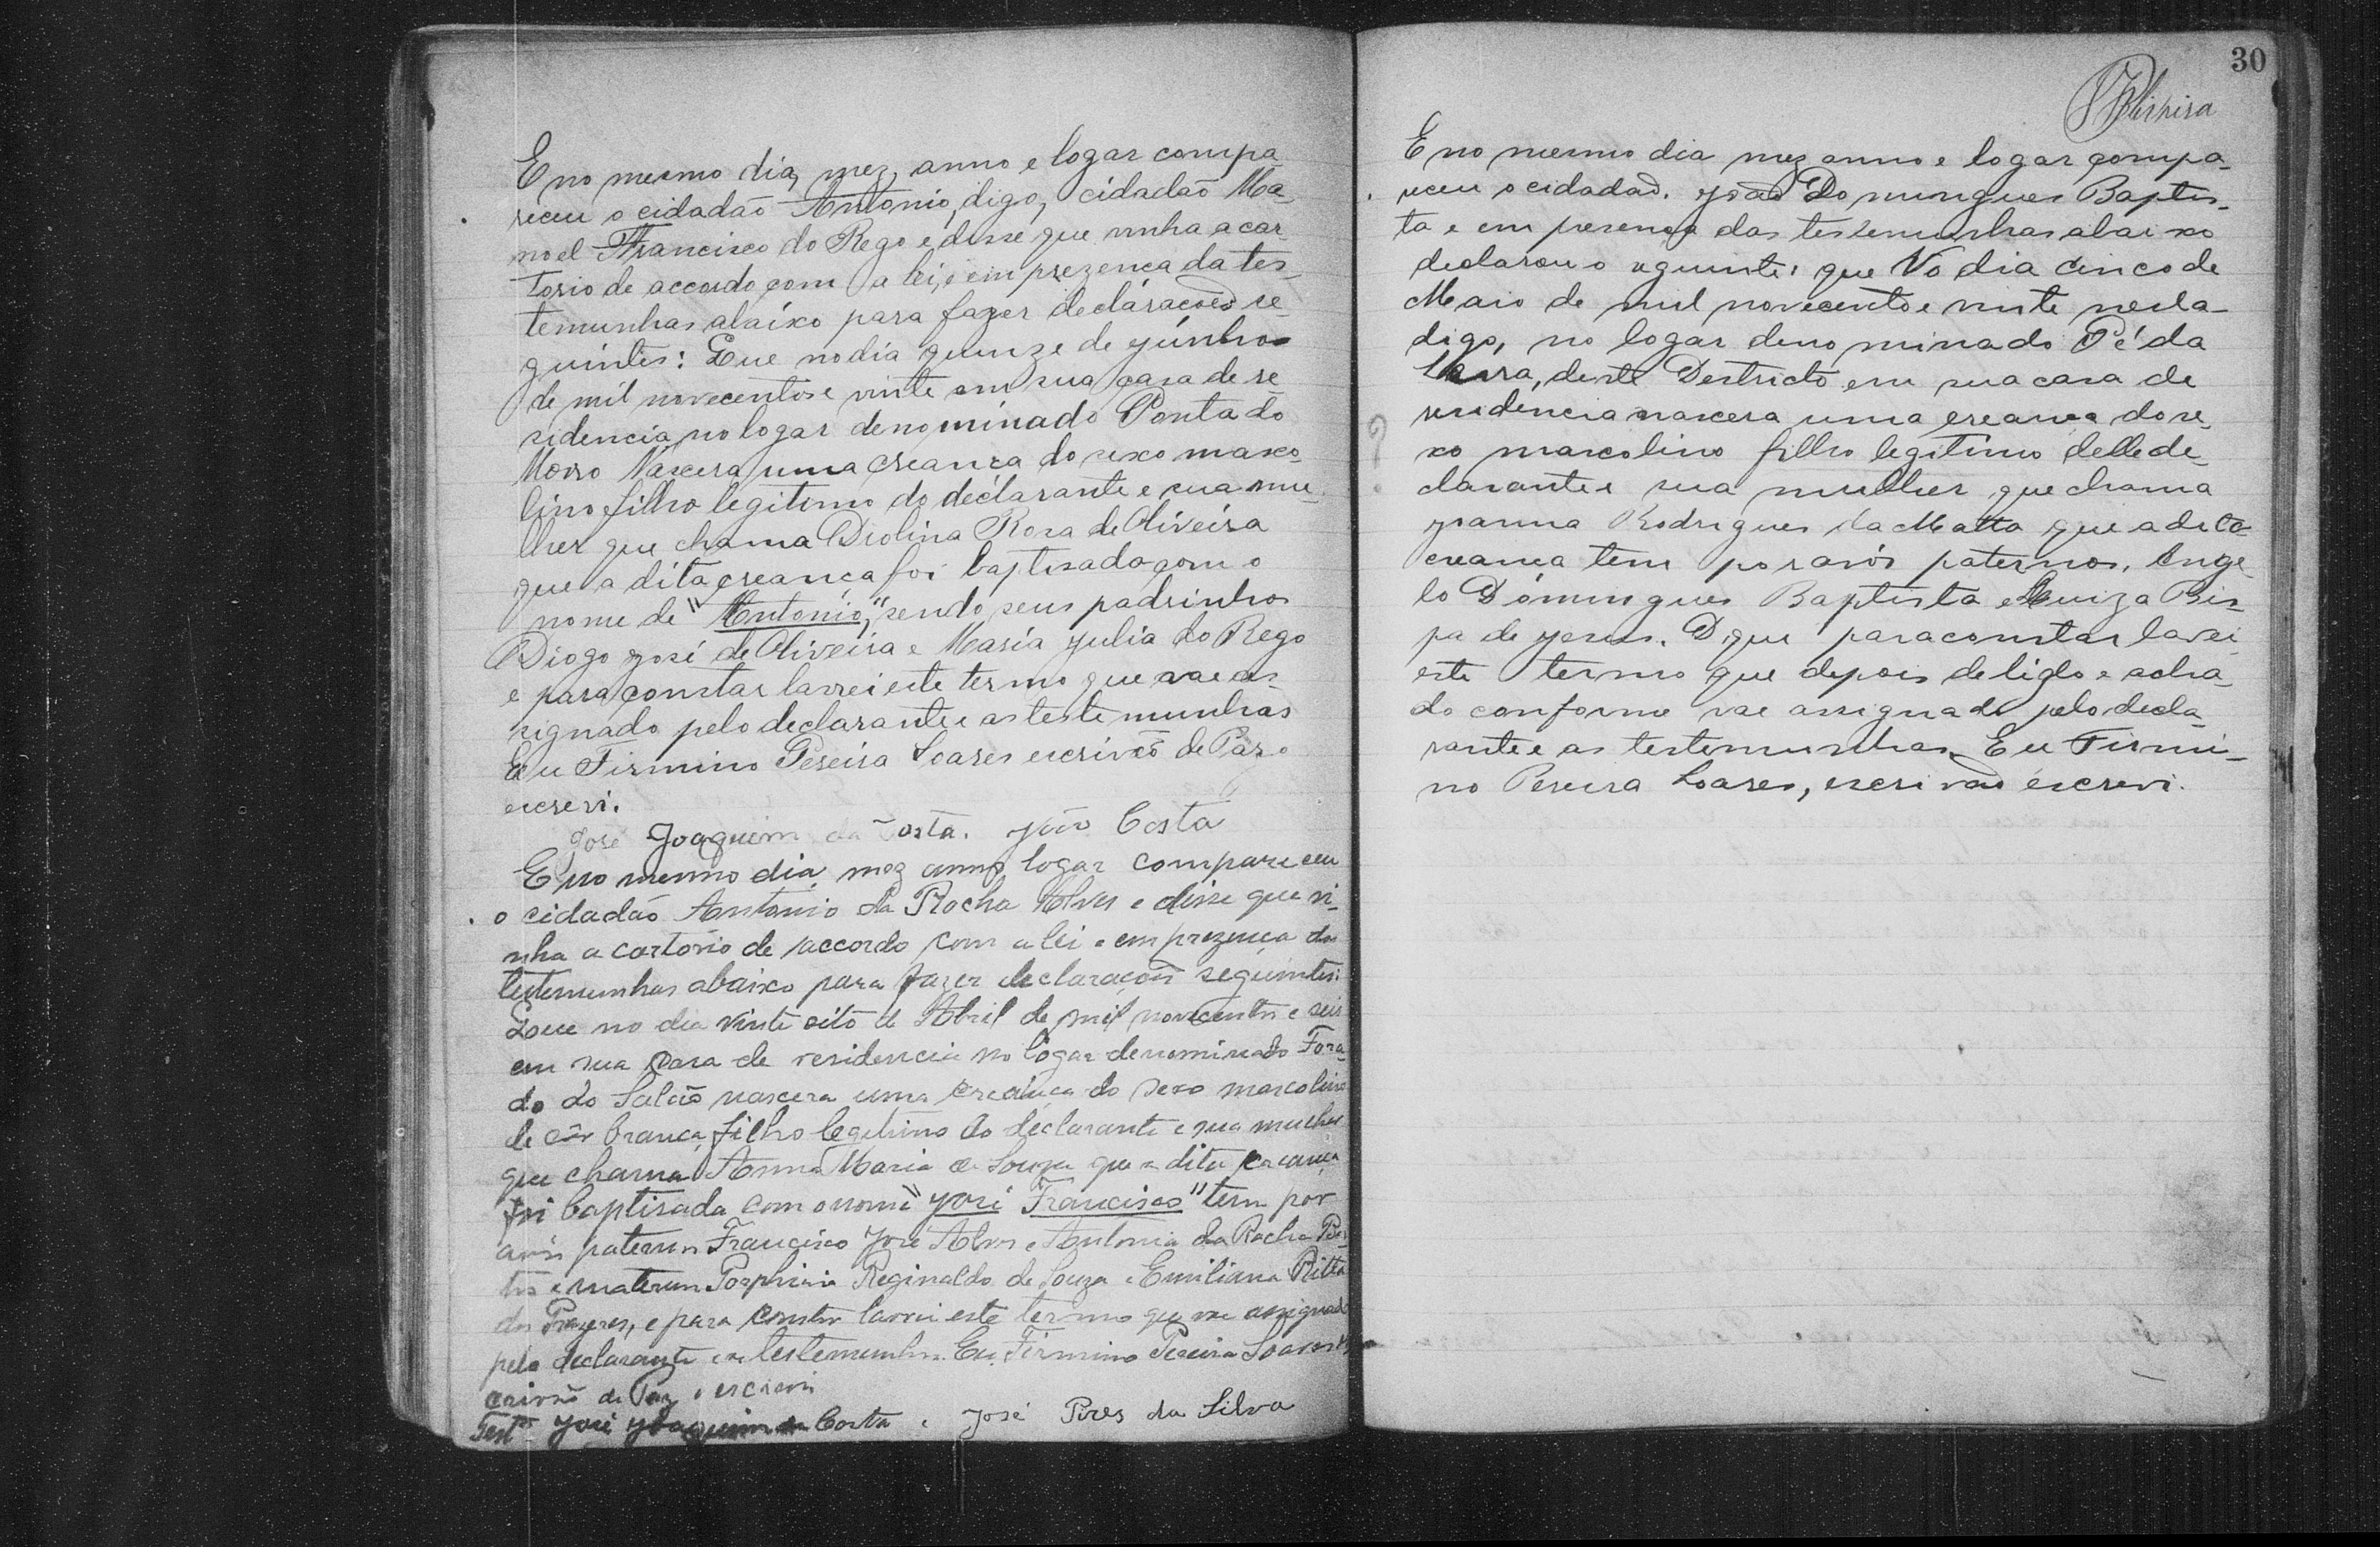 E no mesmo dia, mez, anno e logar compa
receu o cidadão Antonio, digo, cidadão Ma-
noel Francisco do Rego e disse que vinha a car-
torio de accordo com a lei, e em prezença da tes-
temunhas abaixo para fazer declarações se-
guintes: Que no dia quinze de Junho
de mil novecentos e vinte em sua casa de re-
sidencia, no logar denominado Ponta do
Morro Nascera uma creança do sexo masco-
lino filho legitimo do declarante e sua mu-
lher que chama Diolina Rosa de Oliveira
que a dita creança foi baptisada com o
nome de "Antonio," sendo seus padrinhos
Diogo José de Oliveira e Maria Julia do Rego
e para constar lavrei este termo que vae as-
signado pelo declarante e as testemunhas
Eu Firmino Pereira Soares escrivão de Paz o
escrevi.
José Joaquim da Costa. João Costa
E no mesmo dia mez anno logar compareceu
o cidadão Antonio da Rocha Alves e disse que vi-
nha a cartorio de accordo com a lei e em prezença das
testemunhas abaixo para fazer declaração seguintes:
Que no dia vinte oito de Abril de mil novecentos e seis
em sua casa de residencia no logar denominado Fora-
do do Salão nascera uma creança do sexo mascolino
de côr branca, filho legitimo do declarante e sua mulher
que chama Anna Maria de Souza que a dita creança
foi baptisada com o nome "José Francisco" tem por
avós paternos Francisco José Alves e Antonia da Rocha
e maternos Porphirio Reginaldo de Souza e Emiliana Ritta
dos Prazeres, e para constar lavrei este termo que vae assignado
pelo declarante e as testemunhas. Eu, Firmino Pereira Soares es-
crivão de Paz o escrevi
Testas José Joaquim da Costa e José Pires da Silva
30
E no mesmo dia mez anno e logar compa-
receu o cidadão. João Domingues Baptis-
ta e em presença das testemunhas abaixo
declarou o seguinte: que No dia cinco de
Maio de mil novecentos e vinte nesta-
digo, no logar denominado Pé da
Serra, deste Destricto em sua casa de
residencia nascera uma creança do se-
xo mascolino filho legitimo delle de-
clarante e sua mulher que chama
Joanna Rodrigues da Matta que a dita
creança tem por avós paternos, Ange-
lo Domingues Baptista e Luiza Bis-
pa de Jesus. Do que para constar lavrei
este termo que depois de lido e acha-
do conforme vae assignado pelo decla-
rante e as testemunhas. Eu Firmi-
no Pereira Soares, escrivão escrevi.